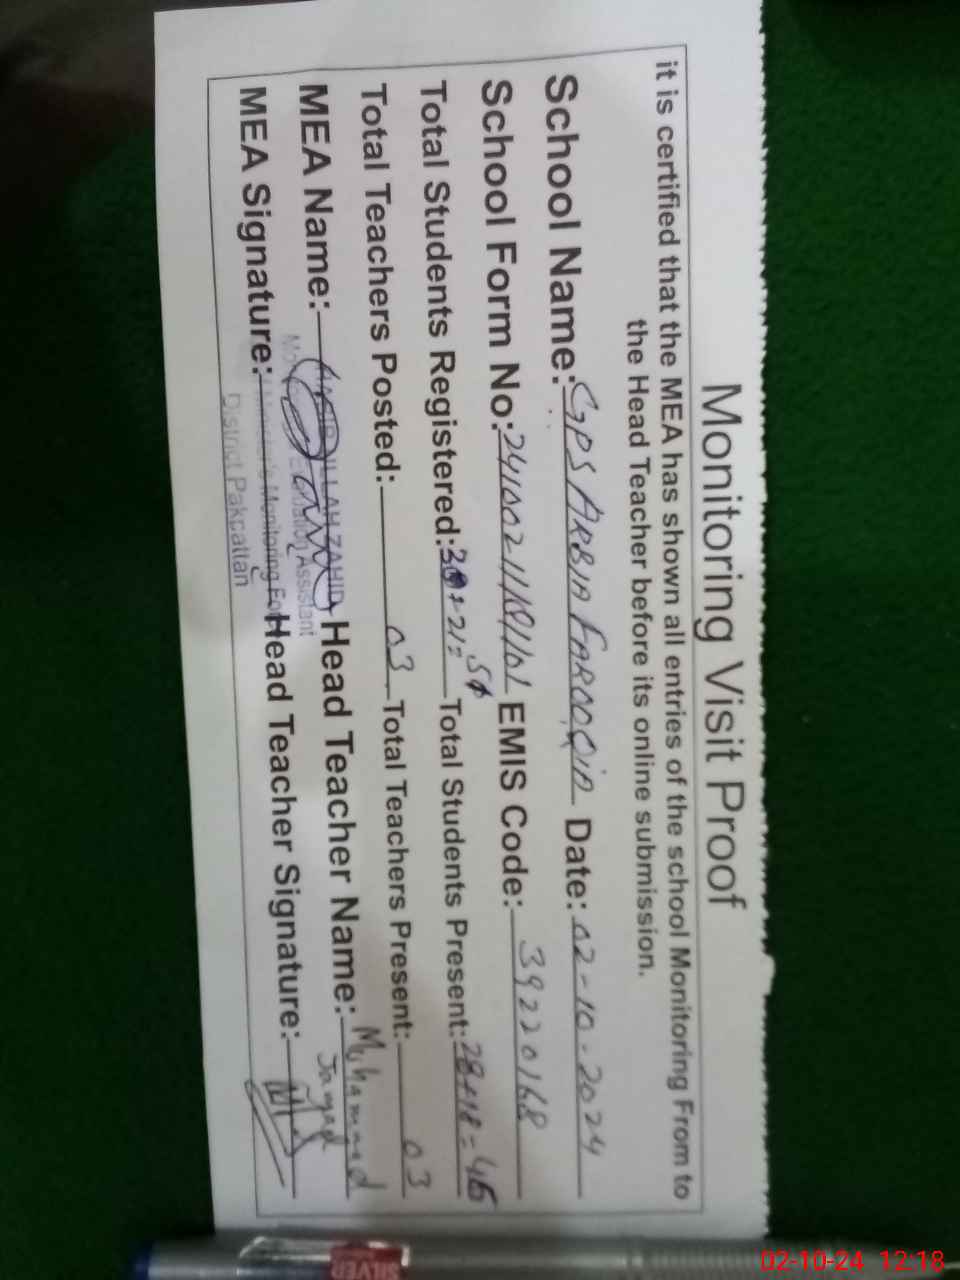 Monitoring Visit Proof
it is certified that the MEA has shown all entries of the school Monitoring From to
the Head Teacher before its online submission.
School Name: GPS ARBIA FAROOQIA Date: 02-10-2024
School Form No: EMIS Code: 39220168
Total Students Registered: +21= Total Students Present: 28+18=46
Total Teachers Posted: 03 Total Teachers Present: 03
MEA Name: ZAHID Head Teacher Name: Muhammad
MEA Signature: Head Teacher Signature:
Assistant
Monitoring
District Pakpattan
SILVER
02-10-24 12:18